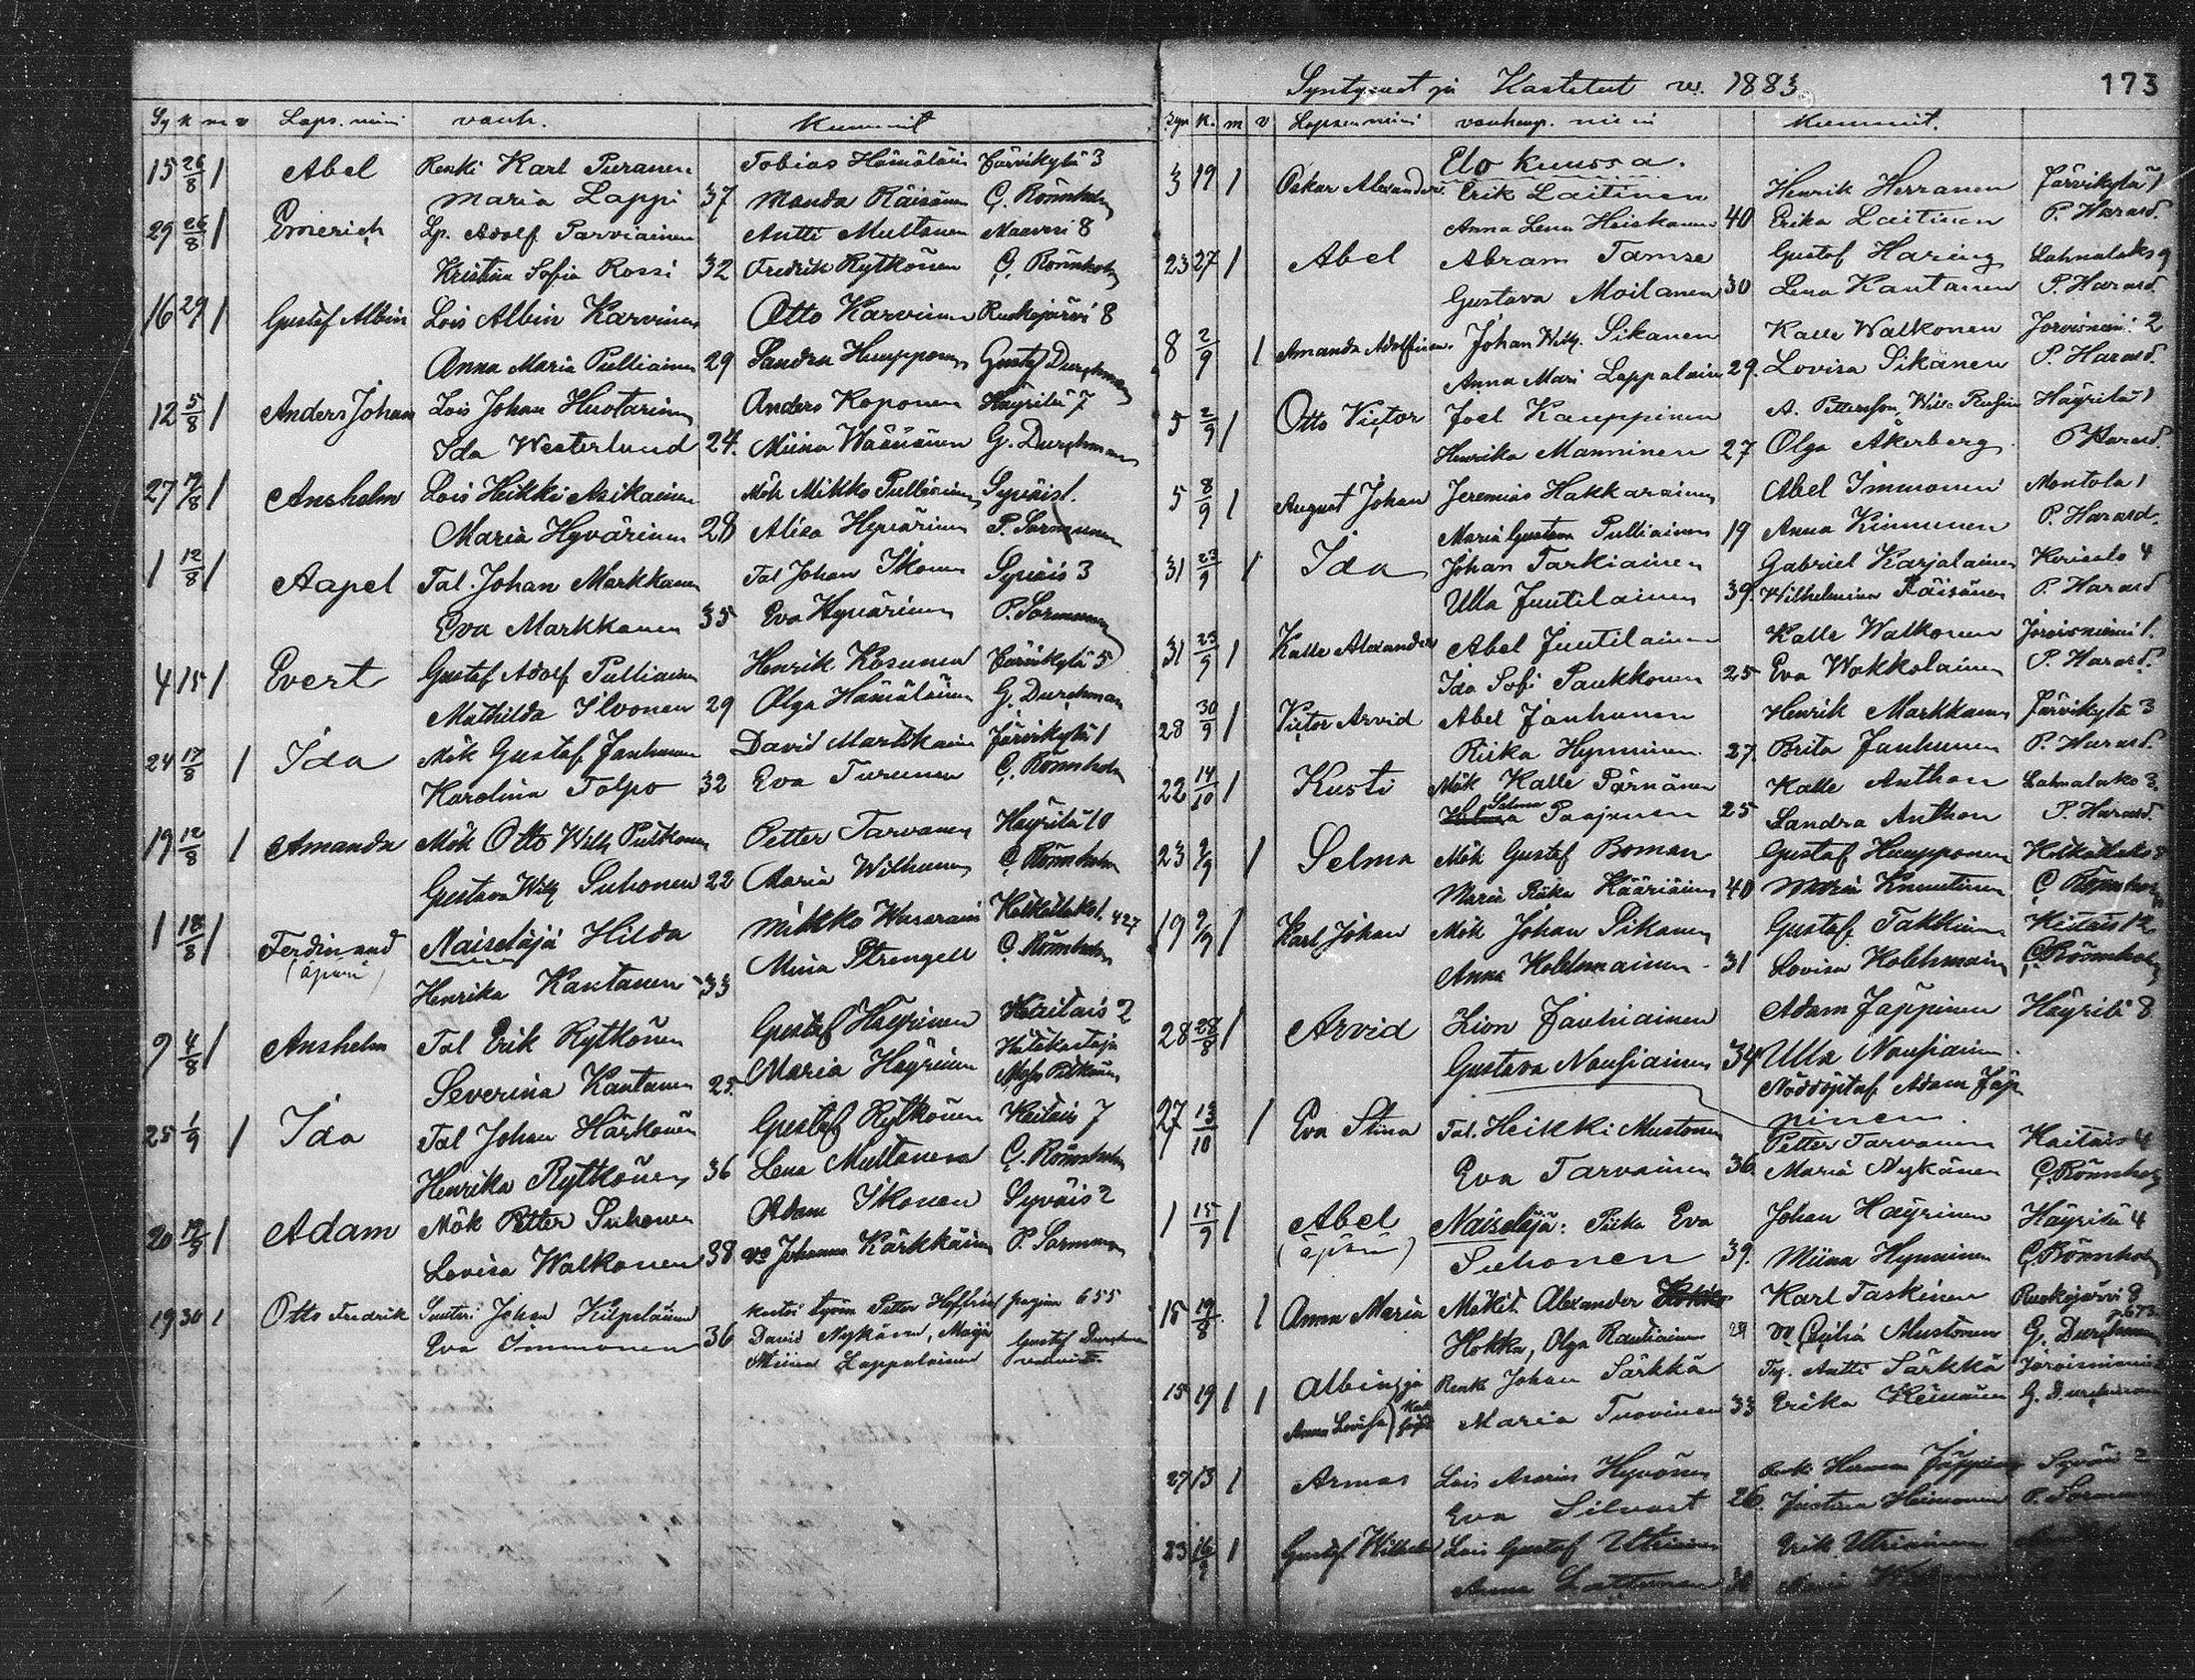 Sy k m v Laps. nimi vanh. Kummit
15 26/8 1 Abel Renki Karl Puranen Tobias Hämäläin Järvikylä 3
Maria Lappi 37 Manda Räisänen C. Rönnholm
29 26/8 1 Emerich Lp. Adolf Parviainen Antti Multanen Naaveri 8
Kristina Sofia Rossi 32 Fredrik Rytkönen C. Rönnholm
16 29 1 Gustaf Albin Lois Albin Karvinen Otto Karvinen Ruokojärvi 8
Anna Maria Pulliainen 29 Sandra Huupponen Gustaf Durchman
12 5/8 1 Anders Johan Lois Johan Huotarinen Anders Koponen Häyrilä 7
Ida Westerlund 24. Miina Wäänänen G. Durchman
27 12/8 1 Anshelm Lois Heikki Asikainen Mök Mikko Pulliainen Syväis 1.
Maria Hyvärinen 28 Alisa Hyvärinen P. Sormunen
1 12/8 1 Aapel Tal. Johan Markkanen Tal Johan Ikonen Syväis 3
Eva Markkanen 35 Eva Hyvärinen P. Sormunen
4 15 1 Evert Gustaf Adolf Pulliainen Henrik Kosunen Järvikylä 5
Mathilda Ilvonen 29 Olga Hämäläinen G. Durchman
24 17/8 1 Ida Mök Gustaf Janhunen David Martikainen Järvikylä 1
Karolina Tolpo 32 Eva Turunen C. Rönnholm
19 12/8 1 Amanda Mök Otto Wilh Pitkonen Petter Tarvanen Häyrilä 10
Gustava Wilh Suhonen 22 Maria Wilhunen C. Rönnholm
1 18/8 1 Ferdinand Naiseläjä Hilda Mikko Wasarain Kotkatlaks 1. 427
(äpärä) Henrika Kautanen 33 Miina Strengell C. Rönnholm
9 4/8 1 Anshelm Tal Erik Rytkönen Gustaf Häyrinen Kaitais 2
Severina Kautanen 25. Maria Häyrinen Hätäkastaja
25 1/9 1 Ida Tal Johan Härkönen Gustaf Rytkönen Kaitais 7
Henrika Rytkönen 36 Lena Multanen C. Rönnholm
20 1 Adam Mök Petter Suhonen Adam Ikonen Syväis 2
Lovisa Walkonen 38 vo Johanna Kärkkäinen P. Sormunen
19 30 1 Otto Fredrik Suutari Johan Kilpeläinen Petter Hoffrén pagina 655
Eva Immonen 36 David Nykänen, Maija Gustaf Durchman
Miina Lappalainen
Syntyneet ja Kastetut v. 1883. 173
Syn K. m v Lapsen nimi vanhemp. nimi Kummit.
Elo kuussa.
3 19 1 Oskar Alexander Erik Laitinen Henrik Herranen Järvikylä 1
Anna Lena Heiskanen 40 Erika Laitinen P. Harald.
23 27 1 Abel Abram Tamse Gustaf Haring Lahnalaks 9
Gustava Moilanen 30 Lena Kautanen P. Harald.
8 2/9 1 Amanda Adolfina. Johan Wilh. Sikanen Kalle Walkonen Joroisniemi 2
Anna Mari Lappalain 29. Lovisa Sikanen P. Harald.
5 2/9 1 Otto Victor Joel Kauppinen A. Pettersson, Häyrilä 1
Henrika Manninen 27 Olga Åkerberg P. Harald.
5 8/9 1 August Johan Jeremias Hakkarainen Abel Immonen Montola 1
Maria Gustava Pulliainen 19 Anna Kinnunen P. Harald.
31 23/9 1 Ida Johan Tarkiainen Gabriel Karjalainen 4
Ulla Juutilainen 39. Wilhelmina Räisänen P. Harald
31 23/9 1 Kalle Alexander Abel Juutilainen Kalle Walkonen Joroisniemi 1.
Ida Sofi Paukkonen 25 Eva Wokkolainen P. Harald.
28 30/9 1 Victor Arvid Abel Janhunen Henrik Markkanen Järvikylä 3
Riika Hynninen 27. Brita Janhunen P. Harald.
22 14/10 1 Kusti Mök Kalle Pärnänen Kalle Anthon Lahnalaks 3.
Selma Paajanen 25 Sandra Anthon P. Harald.
23 2/9 1 Selma Mök Gustaf Boman Gustaf Huupponen Kotkatlaks 8
Maria Riika Kääriäinen 40 Maria Knuutinen C. Rönnholm
19 2/9 1 Karl Johan Mök Johan Sikanen Gustaf Takkinen Kaitais 12
Anna Kolehmainen 31 Lovisa Kolehmain C. Rönnholm
28 28/8 1 Arvid Zion Jauhiainen Adam Jäppinen Häyrilä 8
Gustava Nousiainen 34 Ulla Nousiainen.
Nöddöpt af Adam Jäp
pinen.
27 13/10 1 Eva Stina Tal. Heikki Mustonen Petter Tarvanen Kaitais 4
Eva Tarvainen 36. Maria Nykänen C. Rönnholm
1 15/9 1 Abel Naiseläjä: Piika Eva Johan Häyrinen Häyrilä 4
(äpärä) Suhonen 39. Miina Hynninen C. Rönnholm
15 19/8 1 Anna Maria Mäkit. Alexander Karl Taskinen Ruokojärvi 8
Hokka, Olga Rautiainen 29 vo Cecilia Mustonen G. Durchman
15 19 1 1 Albin ja Renk Johan Särkkä Antti Särkkä Joroisniemi
Anna Lovisa Maria Tuovinen 33 Erika Heinänen G. Durchman
27 13 1 Armas Lois Asarias Hyvönen Renki Herman Jäppinen Syväis 2
Eva Silvast 26. Justina Heinonen P. Sormunen
23 16/9 1 Gustaf Wilhelm Lois Gustaf Utriainen Erik Utriainen
Anna